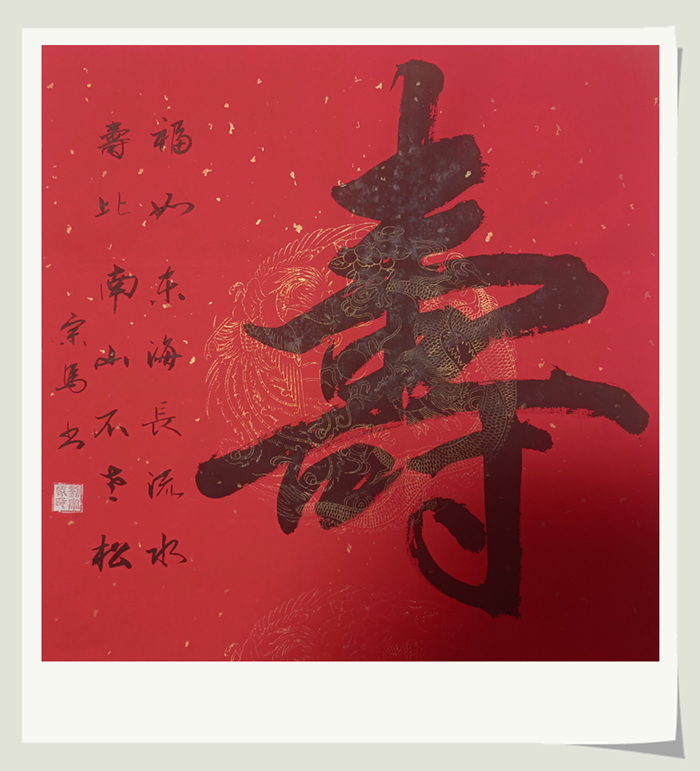 壽
福如东海長流水
壽比南山不老松
宗馬书